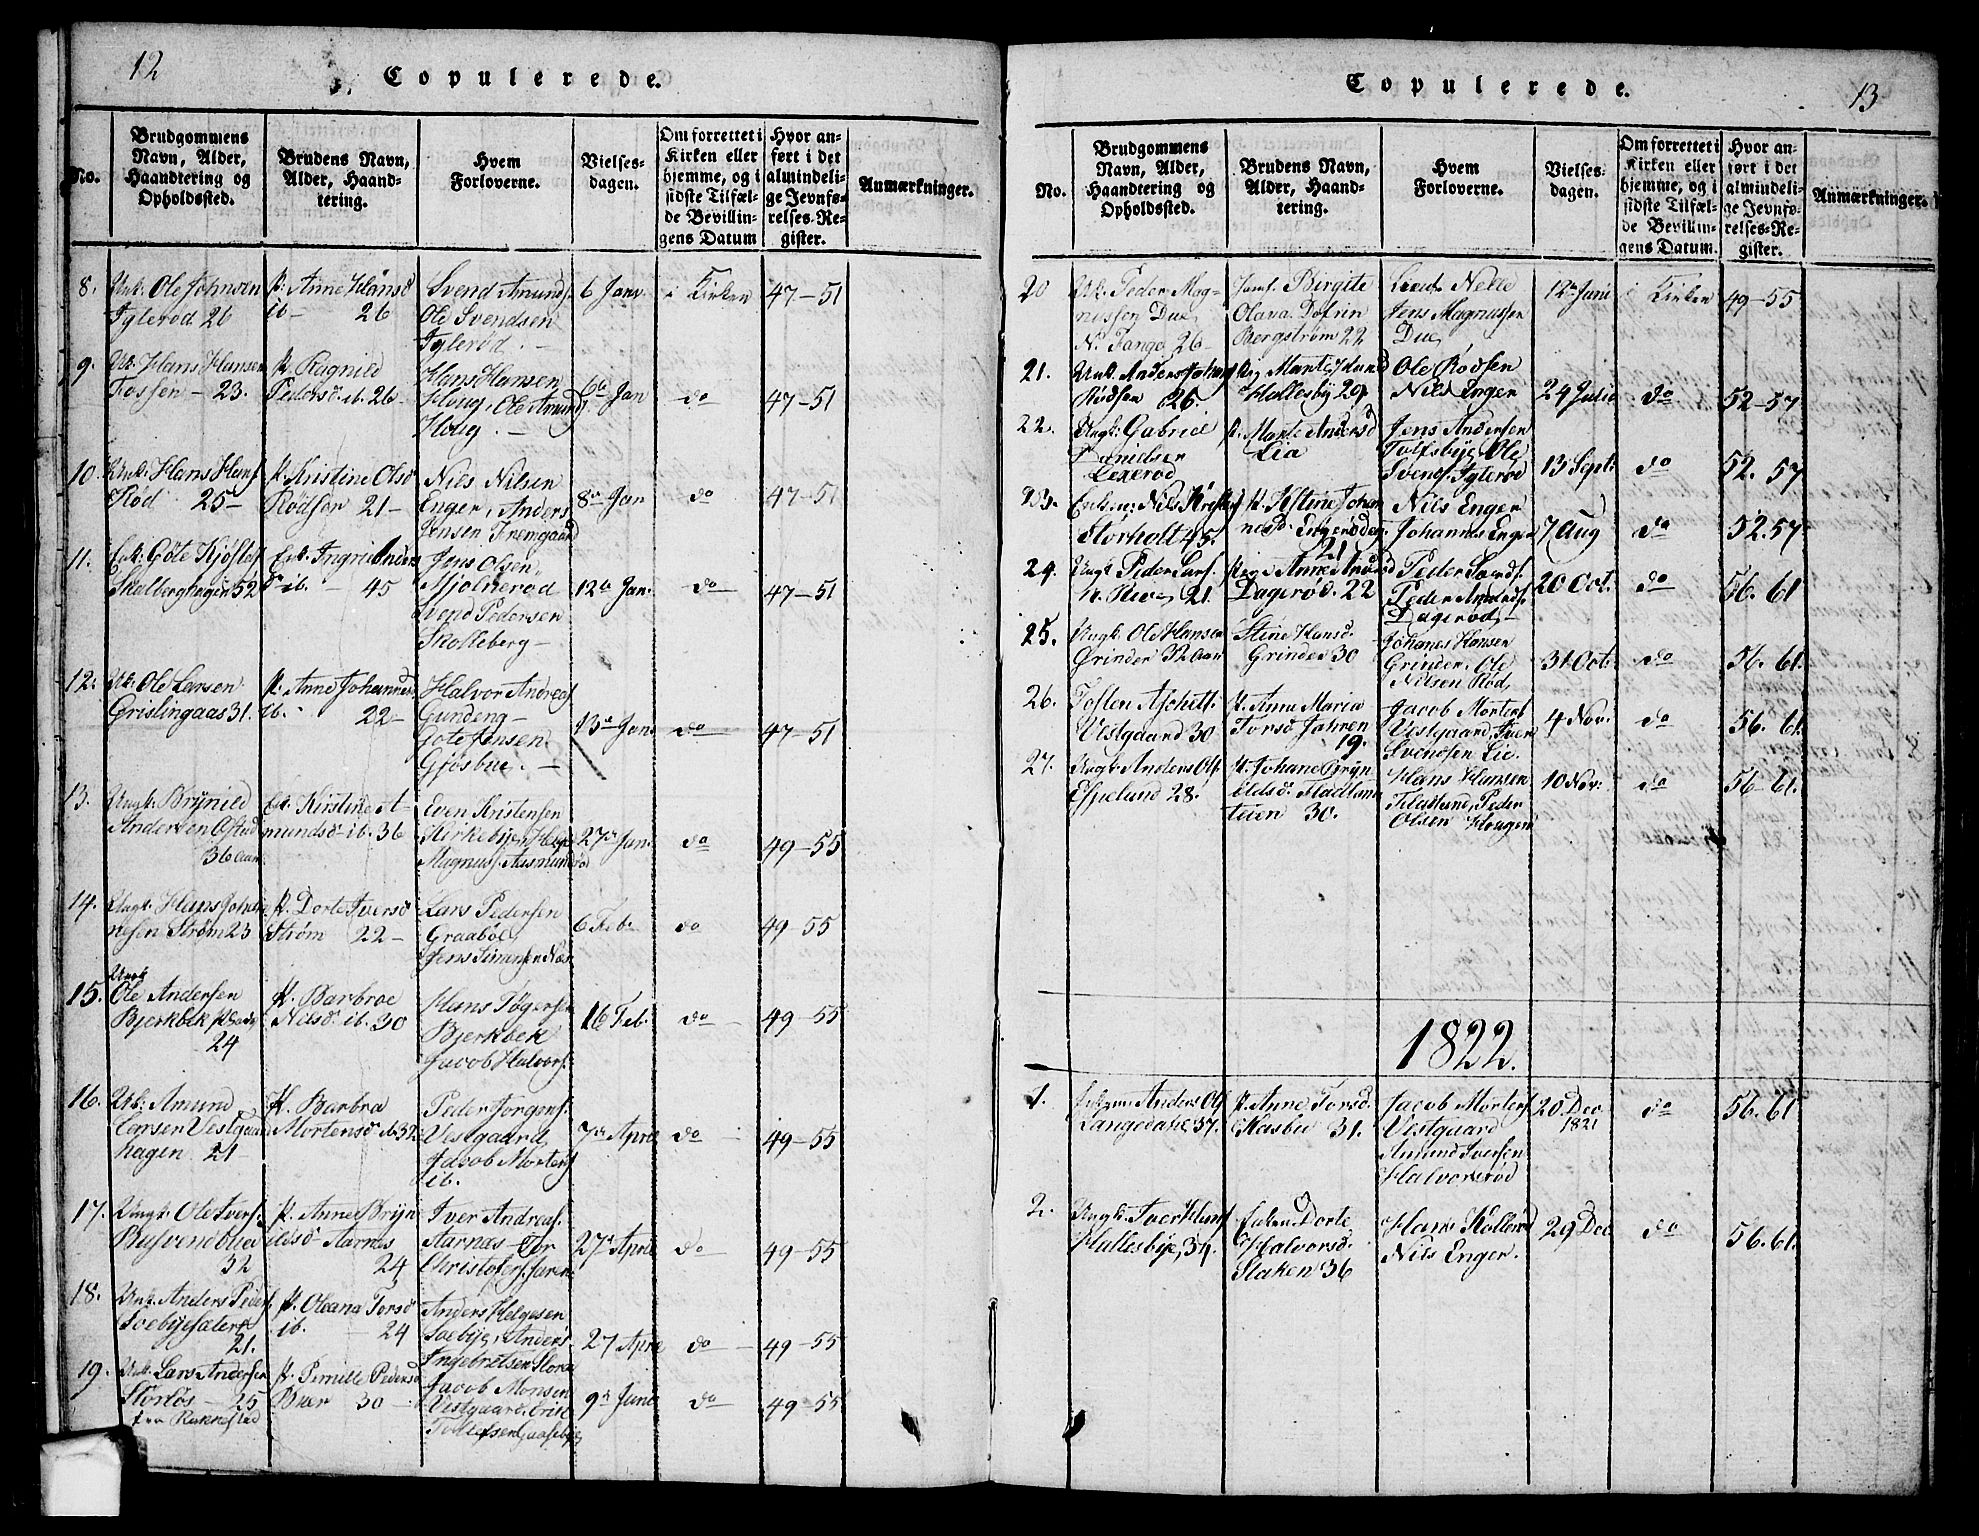 12
Copulerede.
No.
Brudgommens
Navn, Alder,
Haandtering og
Opholdssted.
Brudens Navn,
Alder, Haand-
tering.
Hvem
Forloverne.
Vielses-
dagen.
Om forrettet i
Kirken eller
hjemme, og i
sidste Tilfæl-
de Bevillin-
gens Datum
Hvor an-
ført i det
almindeli-
ge Jevnfø-
relses-Re-
gister.
Anmærkninger.
8.
Unk: Ole Johnsen
Fglerød 26
P: Anne Hansd
ib — 26
Svend Amunds.
Ole Svendsen
Fglerød. —
6 Janv.
i Kirken
47-51
9.
Uk. Hans Hansen
Fossen — 23.
P. Ragnild
Pedersd. ib. 26 —
Hans Hansen
Houg, Ole Amunds.
Houg. —
6te Jan
do
47-51
10.
Unk: Hans Hans
Rød 25 —
P. Kristine Olsd
Rødsen 21 —
Nils Nilsen
Enger, Anders
Jensen Fremgaard
8de Jan
do
47-51
11.
Enk: Göte
Skalberghagen 52
Enk. Ingri Anders
ib. — 45
Jens Olsen,
Mjølnerød
Svend Pedersen
Skolleberg —
12te Jan.
do
47-51
12.
Uk: Ole Larsen
Grislingaas 31.
P. Anne Johannes
ib. 22 —
Halvor Andreas
Gundeng —
Gote Jensen
Gjøsbue. —
13de Jan.
do
47-51
13.
Ungk: Brynild
Andersen Ostad
36 aar
Enk. Kirstine A-
mundsd. ib. 36
Even Kristensen
Kirkebye, Helge
Magnus. Aasmundrød
27de Jan.
do
49-55
14.
Ungk: Hans Johan
nesen Strøm 23
P. Dorte Iversd
Strøm 22 —
Lars Pedersen
Graabøl,
Jens Simensen Næs
6 Feb.
do
49-55
15.
Ungk
Ole Andersen
Bjerkbek
24
P. Barbroe
Nilsd. ib. 30
Hans Tøgersen
Bjerkbek
Jacob Halvors.
16 Feb.
do
49-55
16.
Uk: Amund
Larsen Vestgaard
hagen 21 —
P. Barbra
Mortensd ib 32
Peder Jorgens.
Vestgaard,
Jacob Mortens
ib.
7de April
do
49-55
17.
Ungk: Ole Ivers.
32
P. Anne Bryn
ildsd. Aarnæs
24
Iver Andreas.
Aarnæs — Tor
Christofers.
27de April
do
49-55
18.
Unk. Anders Peders.
21.
P. Oleana Torsd
ib. — 24
Anders Helgesen
Soebye, Anders
Ingebretsen
27 April
do
49-55
19.
Unk. Lars Andersen
Storløs — 25
fra Rakkestad
P. Pernille Pedersd
Buer 30 —
Jacob Monsen
Vestgaard, Erik
Tollefsen
9de Juni
do
49-55
Copulerede.
13
No.
Brudgommens
Navn, Alder,
Haandtering og
Opholdssted.
Brudens Navn,
Alder, Haand-
tering.
Hvem
Forloverne.
Vielses-
dagen.
Om forrettet i
Kirken eller
hjemme, og i
sidste Tilfæl-
de Bevillin-
gens Datum.
Hvor an-
ført i det
almindeli-
ge Jevnfø-
relses-Re-
gister.
Anmærkninger.
20
Uk: Peder Mag-
nussen Due,
26 —
Jomf. Birgite
Olava Dofrin
Bergstrøm 22
Nelle
Jens Magnussen
Due,
12te Juni
i Kirken
49-55
21.
Unk: Anders Johans
Rødsen 26.
Hallesby 29
Ole Rödsen
Nils Enger
24 Julii
do
52-57
22.
Ungk: Gabriel
Lexerød
P. Marte Andersd
Lia
Jens Andersen
Tolfsbye Ole
Svends. Fglerød
13 Sept:
do
52.57
23.
Enkem: Nils Kristens
Storholt 45.
P. Kistine Johan
nesd.
21
Nils Enger
Johannes Enger
7 Aug
do
52.57
24.
Ungk Peder Lars.
21.
Pige Anne Amunsd
Dagerød. 22
Peder Larss.
Peder Amunds.
Dagerød, —
20 Oct.
do
56.61
25.
Ungk: Ole Hansen
Grinder 32 aar
Stine Hansd.
Grinder 30
Johanes Hansen
Grinder, Ole
Nilsen Rød,
31 Oct.
do
56.61.
26.
Tosten
Vestgaard 30
P. Anne Maria
Torsd Jahren
19.
Jacob Mortens
Vestgaard, Iver
Svendsen Lie.
4 Nov:
do
56.61.
27.
Ungk: Anders Ols.
Espelund 28.
P. Johane Bryn
ildsd.
30.
Hans Hansen
Peder
Olsen Hougen
10 Nov:
do
56-61.
1822.
1.
Enkem: Anders Ols
Langedahl 37.
P. Anne Torsd.
Skasbu 31.
Jacob Mortens
Vestgaard
Amund Iversen
Halvorsrød
20 Dec.
1821
do
56.61
2.
Ungk: Iver Hans
Hallesbye, 34.
Enken Dorte
Halvorsd.
Slaken 36
Hans
Nils Enger.
29 Dec
do
56.61.